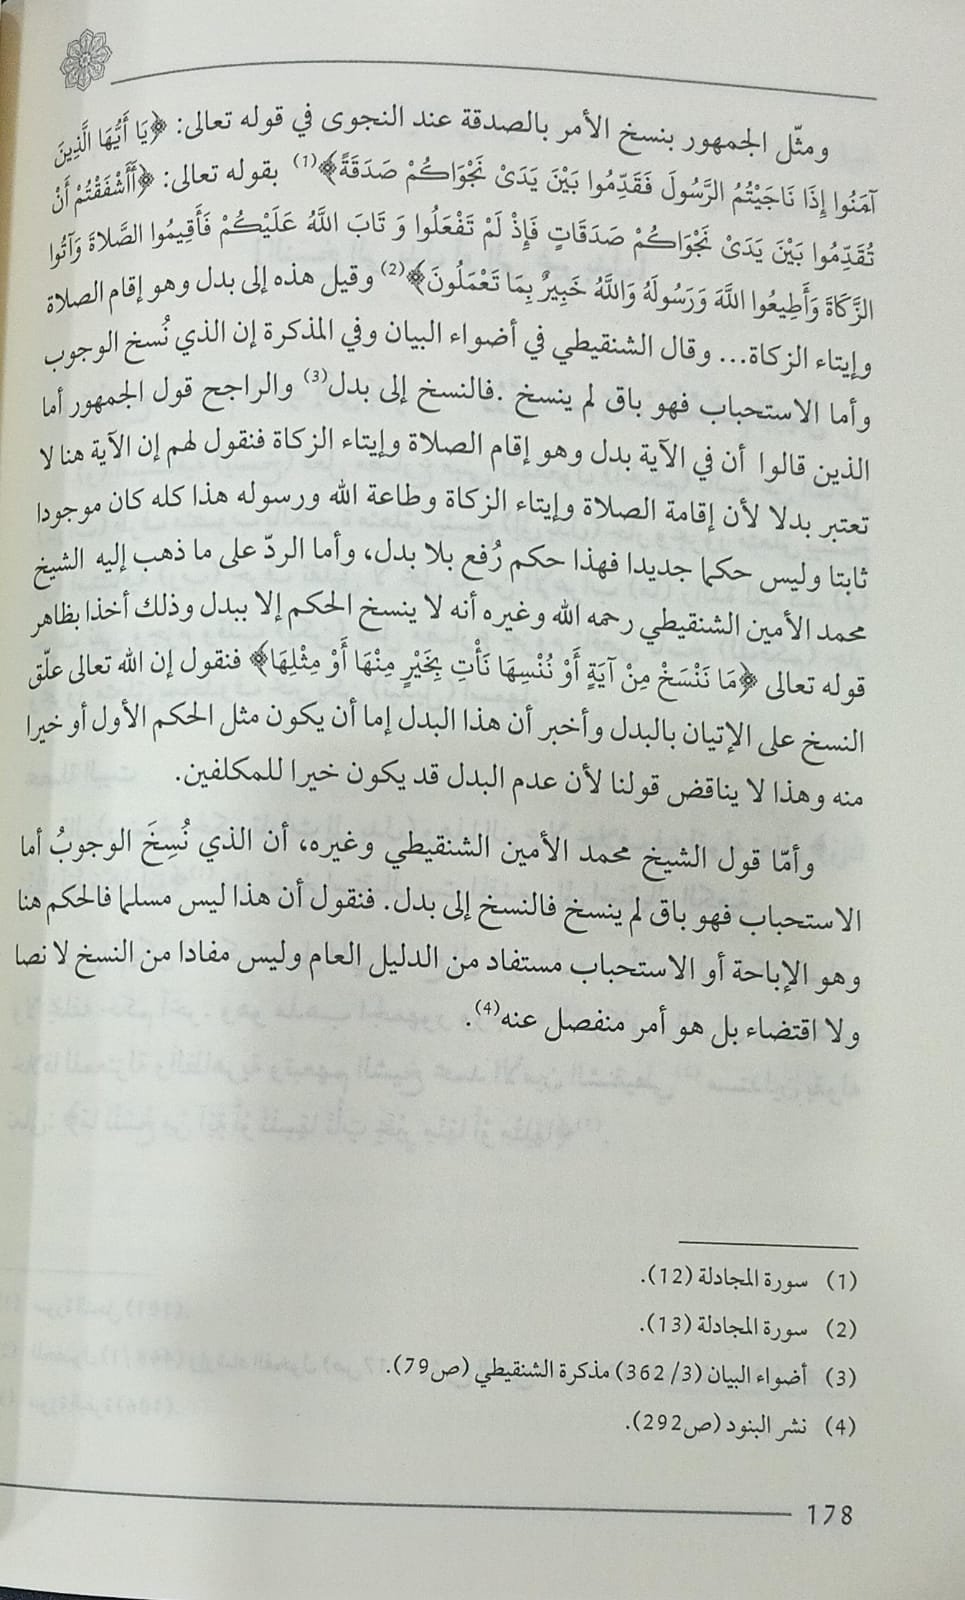 ومثّل الجمهور بنسخ الأمر بالصدقة عند النجوى في قوله تعالى: ﴿يَا أَيُّهَا الَّذِينَ
آمَنُوا إِذَا نَاجَيْتُمُ الرَّسُولَ فَقَدِّمُوا بَيْنَ يَدَىْ نَجْوَاكُمْ صَدَقَةً﴾(1) بقوله تعالى: ﴿أَأَشْفَقْتُمْ أَنْ
تُقَدِّمُوا بَيْنَ يَدَىْ نَجْوَاكُمْ صَدَقَاتٍ فَإِذْ لَمْ تَفْعَلُوا وَ تَابَ اللَّهُ عَلَيْكُمْ فَأَقِيمُوا الصَّلاةَ وَآتُوا
الزَّكَاةَ وَأَطِيعُوا اللَّهَ وَرَسُولَهُ وَاللَّهُ خَبِيرٌ بِمَا تَعْمَلُونَ﴾(2) وقيل هذه إلى بدل وهو إقام الصلاة
وإيتاء الزكاة... وقال الشنقيطي في أضواء البيان وفي المذكرة إن الذي نُسخ الوجوب
وأما الاستحباب فهو باق لم ينسخ .فالنسخ إلى بدل(3) والراجح قول الجمهور أما
الذين قالوا أن في الآية بدل وهو إقام الصلاة وإيتاء الزكاة فنقول لهم إن الآية هنا لا
تعتبر بدلا لأن إقامة الصلاة وإيتاء الزكاة وطاعة الله ورسوله هذا كله كان موجودا
ثابتا وليس حكما جديدا فهذا حكم رُفع بلا بدل، وأما الردّ على ما ذهب إليه الشيخ
محمد الأمين الشنقيطي رحمه الله وغيره أنه لا ينسخ الحكم إلا ببدل وذلك أخذا بظاهر
قوله تعالى ﴿مَا نَنْسَخْ مِنْ آيَةٍ أَوْ نُنْسِهَا نَأْتِ بِخَيْرٍ مِنْهَا أَوْ مِثْلِهَا﴾ فنقول إن الله تعالى علّق
النسخ على الإتيان بالبدل وأخبر أن هذا البدل إما أن يكون مثل الحكم الأول أو خيرا
منه وهذا لا يناقض قولنا لأن عدم البدل قد يكون خيرا للمكلفين.
وأمّا قول الشيخ محمد الأمين الشنقيطي وغيره، أن الذي نُسِخَ الوجوبُ أما
الاستحباب فهو باق لم ينسخ فالنسخ إلى بدل. فنقول أن هذا ليس مسلما فالحكم هنا
وهو الإباحة أو الاستحباب مستفاد من الدليل العام وليس مفادا من النسخ لا نصا
ولا اقتضاء بل هو أمر منفصل عنه(4).
(1) سورة المجادلة (12).
(2) سورة المجادلة (13).
(3) أضواء البيان (3/ 362) مذكرة الشنقيطي (ص79).
(4) نشر البنود (ص292).
178